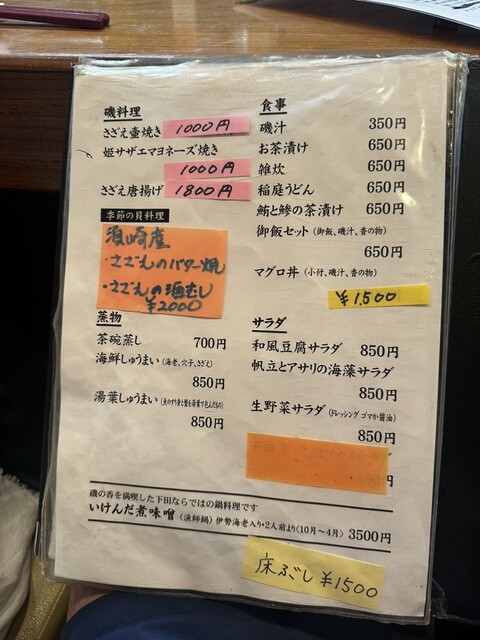 磯料理
さざえ壷焼き 1000円
姫サザエマヨネーズ焼き
1000円
さざえ唐揚げ 1800円
季節の貝料理
須崎産
・さざえのバター焼
・さざえの酒むし
¥2000
蒸物
茶碗蒸し 700円
海鮮しゅうまい（海老、穴子、さざえ）
850円
湯葉しゅうまい
850円
食事
磯汁 350円
お茶漬け 650円
雑炊 650円
稲庭うどん 650円
鮪と鯵の茶漬け 650円
御飯セット（御飯、磯汁、香の物）
650円
マグロ丼（小付、磯汁、香の物）
¥1,500
サラダ
和風豆腐サラダ 850円
帆立とアサリの海藻サラダ
850円
生野菜サラダ（ドレッシング ゴマか醤油）
850円
円
磯の香を満喫した下田ならではの鍋料理です
いけんだ煮味噌（漁師鍋）伊勢海老入り・2人前より〈10月～4月〉 3500円
床ぶし ¥1500